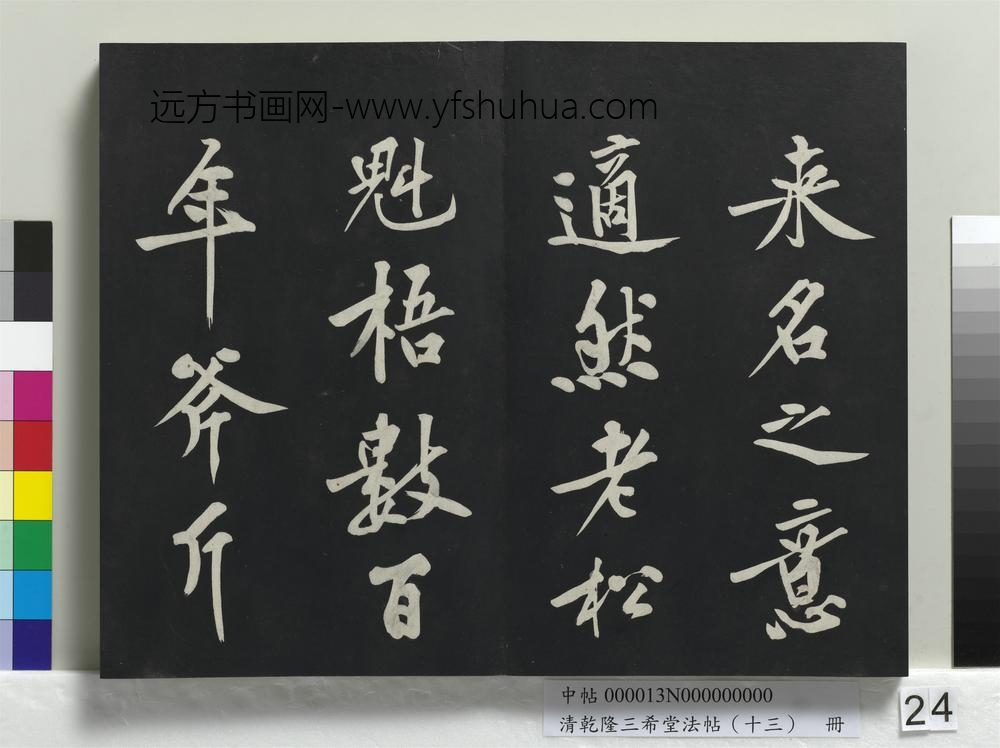 远方书画网-www.yfshuhua.com
来名之意
適然老松
魁梧數百
年斧斤
中帖 000013N000000000
清乾隆三希堂法帖（十三） 冊
24